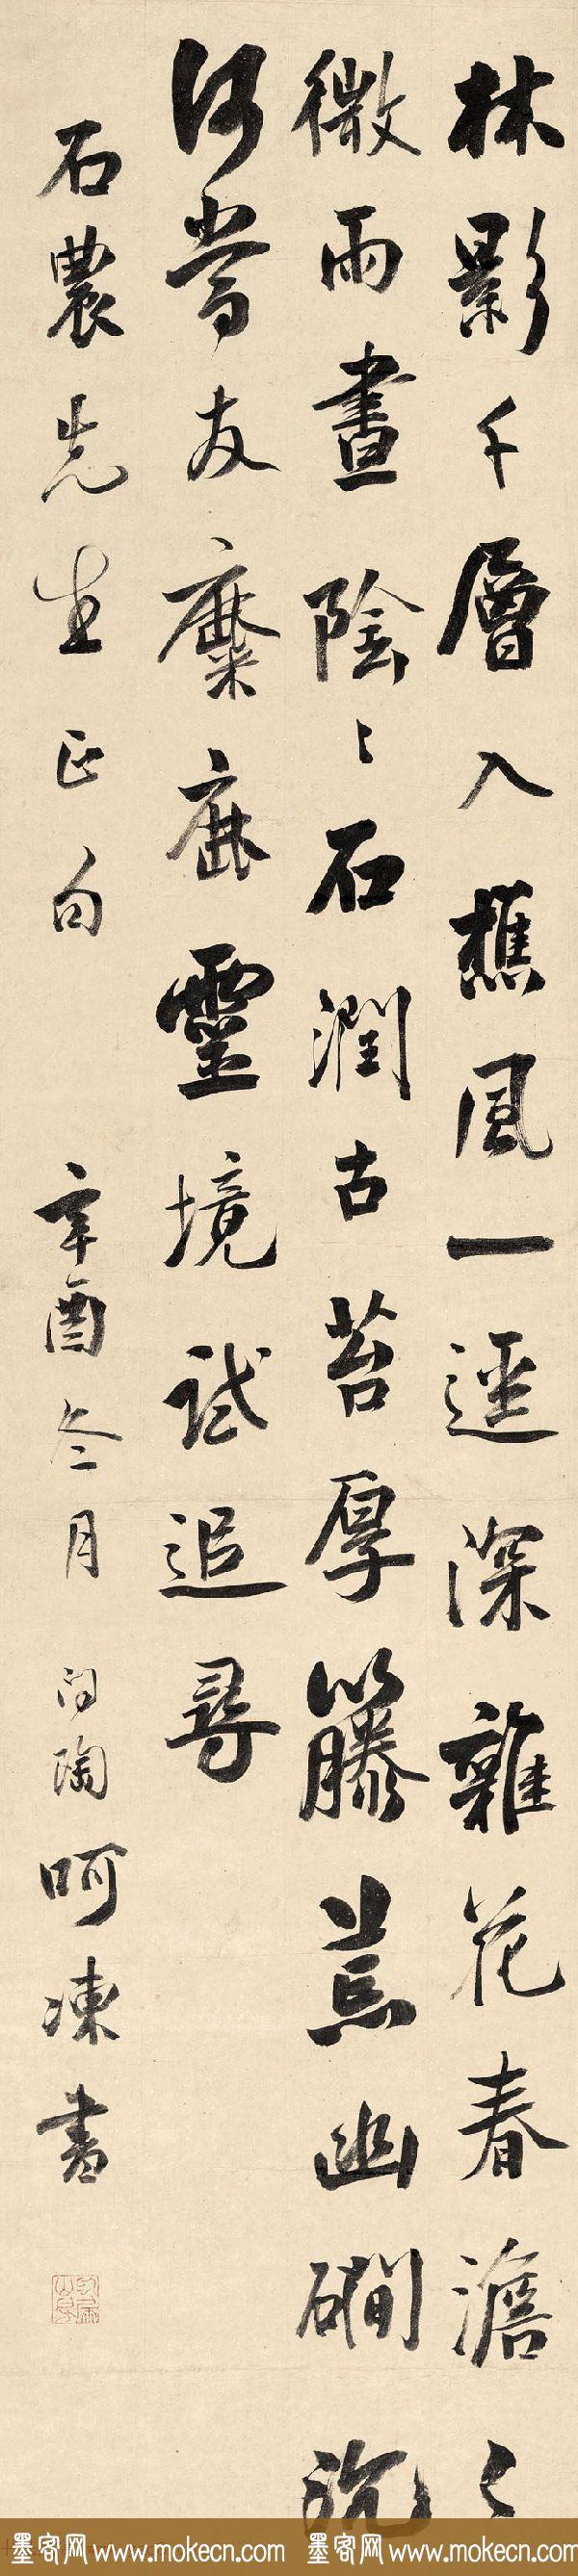 林影千層入樵風一逕深雜花春澹〻
微雨晝陰〻石潤古苔厚籐荒幽磵沉
何當友麋鹿靈境試追尋
石農先生正句 辛酉冬月 問陶呵凍書
墨客网 www.mokecn.com 墨客网 www.mokecn.com